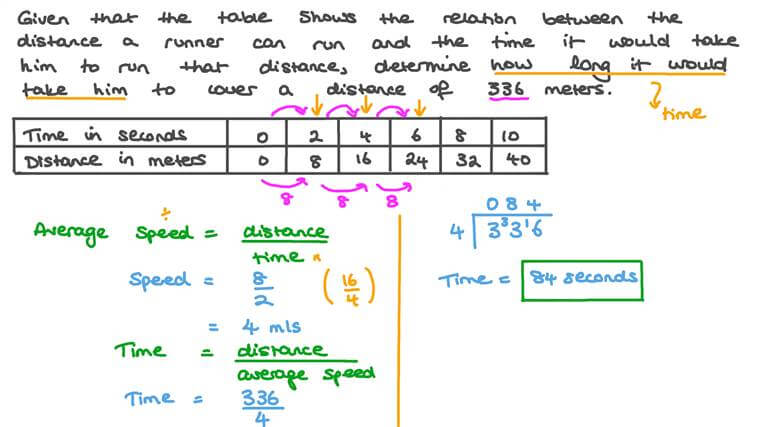 Given that the table shows the relation between the
distance a runner can run and the time it would take
him to run that distance, determine how long it would
take him to cover a distance of 336 meters.
time
Time in seconds 0 2 4 6 8 10
Distance in meters 0 8 16 24 32 40
8 8 8
÷
Average Speed = distance
time
Speed = 8
2
(16
4)
= 4 m/s
Time = distance
average speed
Time = 336
4
084
4 3³3¹6
Time = 84 seconds